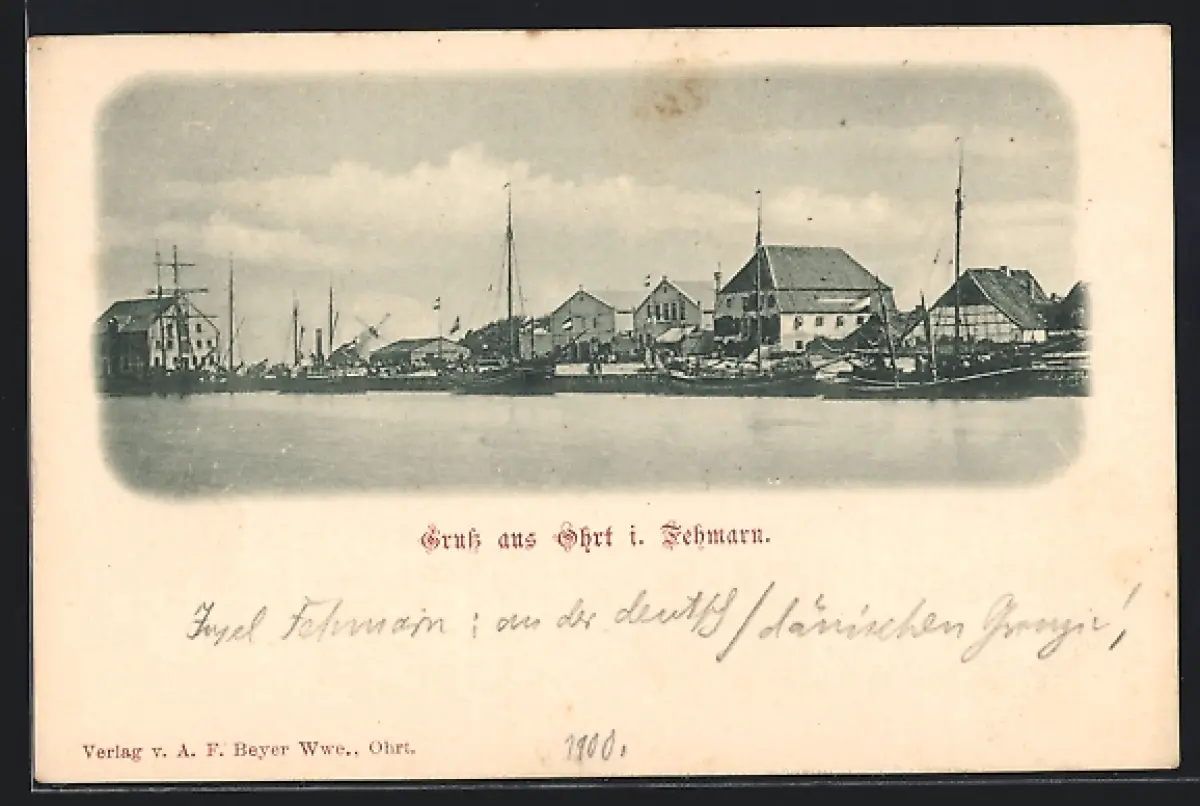 Gruß aus Ohrt i. Fehmarn.
Insel Fehmarn : an der deutsch/dänischen Grenze!
Verlag v. A. F. Beyer Wwe., Ohrt.
1900.